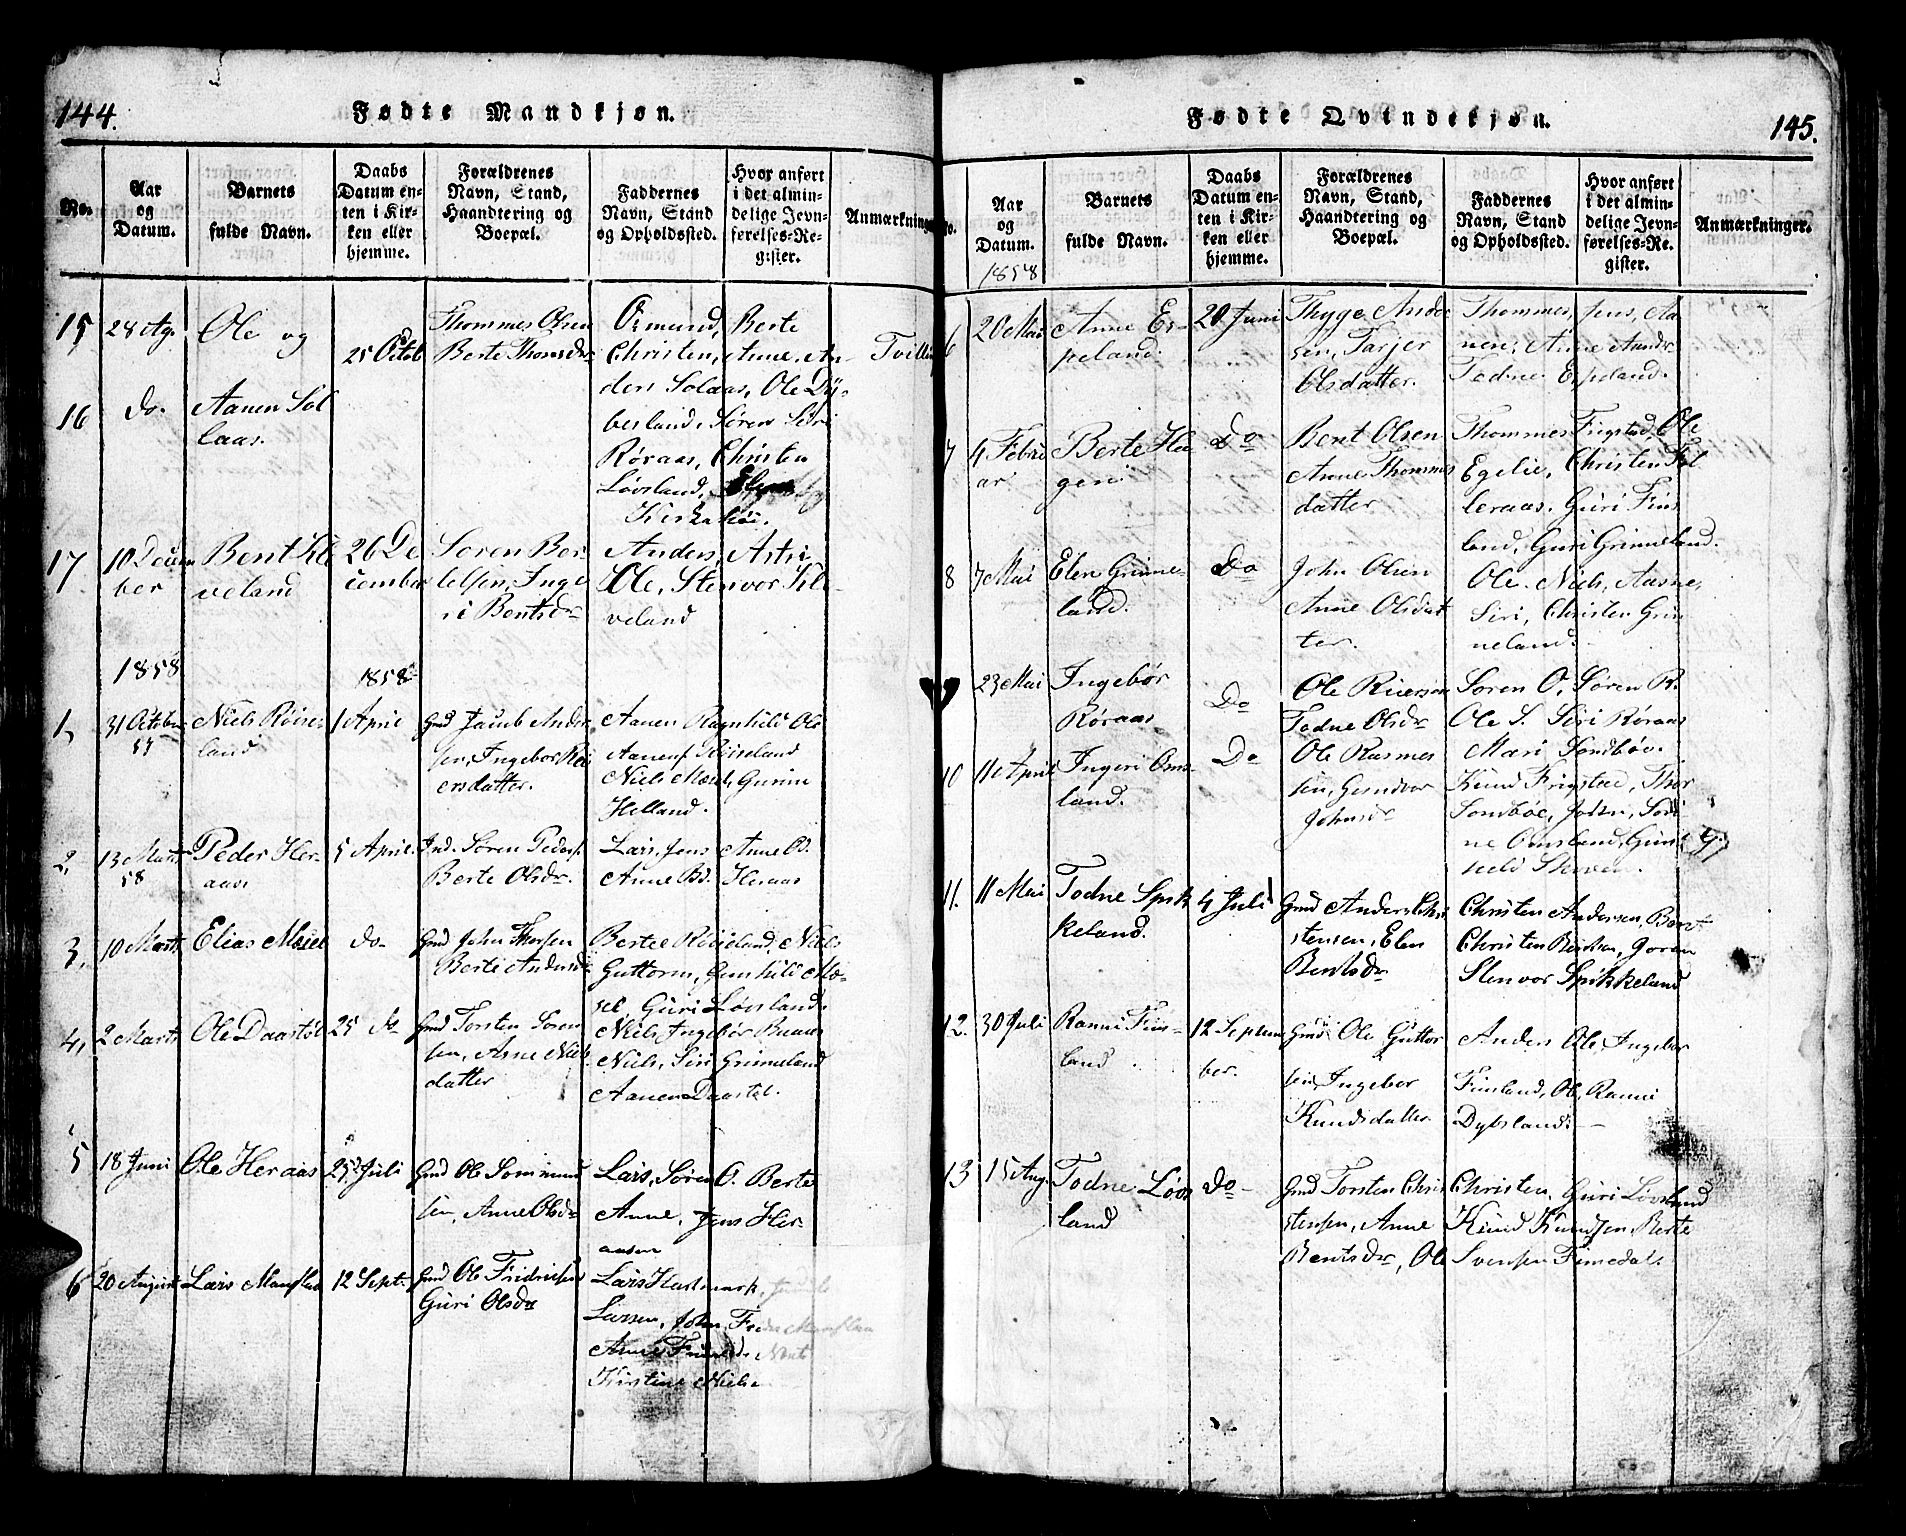 144.
Fødte Mandkjøn.
No.
Aar
og
Datum.
Barnets
fulde Navn.
Daabs
Datum en-
ten i Kir-
ken eller
hjemme.
Forældrenes
Navn, Stand,
Haandtering og
Boepæl.
Faddernes
Navn, Stand
og Opholdssted.
Hvor anført
i det almin-
delige Jevn-
førelses-Re-
gister.
Anmærkninger
15
28 Ag.
Ole og
25 Octob
Thommes Olsen
Berte Thomsdr
Osmund, Berte
Christen, Anne, An-
ders Solaas, Ole Dy-
besland, Søren Siri
Røraas, Christen
Løvland,
Tvillin
16
do.
Aanen Sol
laas.
17
10 Decem
ber
Bent Kle
veland
26 De
cember
Soren Ber-
telsen, Inge
ri Bentsdr
Anders, Astri
Ole, Stenvor Kle-
veland
1858
1858
1,
31 October
57
Niels Röise
land
1 April
Gmd Jacob Ander
sen, Ingebor Rei
ersdatter.
Aanen Ragnhild Ole
Aanens Röiseland
Niels Mæsel, Gurine
Helland.
2,
13 Marts
58
Peder Her
aas
5 April.
Ind. Søren Peders.
Berte Olsdr.
Lars, Jens Anne O.
Anne B. Heraas
3,
10 Marts
Elias Mæsel
do-
Gmd John Thorsen
Berte Andersd
Bertel Röiseland, Niels
Guttorm, Gunhild Mæ-
sel, Guri Løvsland.
4,
2 Marts
Ole Daastöl
25 do
Gmd Torsten Soren
sen, Anne Niels
datter
Niels, Ingebör
Niels, Siri Grimeland
Aanen Daastöl.
5
18 Juni
Ole Heraas
25 Juli
Gmd Ole Sommund
sen, Anne Olsdr
Lars, Søren O. Berte
Anne, Jens Her
aasen
6
20 August
Lars
12 Sept.
Gmd Ole Fridriksen
Guri Olsdr
Lars
Larsen, John
Anne
Kirstine Niels
145.
Fødte Qvindekjøn.
No.
Aar
og
Datum.
1858
Barnets
fulde Navn.
Daabs
Datum en-
ten i Kir-
ken eller
hjemme.
Forældrenes
Navn, Stand,
Haandtering og
Boepæl.
Faddernes
Navn, Stand
og Opholdssted.
Hvor anført
i det almin-
delige Jevn-
førelses-Re-
gister.
Anmærkninger.
6
20 Mai
Anne Es-
peland.
20 Juni
Thyge Ander
sen, Tarjer
Olsdatter.
Thommes, Jens, Aa-
nen, Anne Andr
Todne Espeland.
7
4 Febru
ar
Berte Hau
gen.
Do
Bent Olsen
Anne Thommes
datter
Thommes Frigstad, Ole
Egelie, Christen Føl
leraas. Guri Fins
land, Guri Grimeland.
8
7 Mai
Elen Grime-
land.
Do
John Olsen
Anne Olsdat
ter.
Ole. Niels, Aasne,
Siri, Christen Gri
meland.
23 Mai
Ingebör
Röraas
Do
Ole Reierson
Todne Olsdr
Soren O. Søren R.
Ole S. Siri Røraas
Mari Sondböe.
10
11 April
Ingeri Oms-
land.
Do
Ole Rasmes
sen, Gundvor
Johnsdr
Knud Frigstad, Thor
Sondböe, John, Seri
ne Omsland, Gun
hild
11.
11 Mai
Todne Spik
keland.
4 Juli
Gmd Anders Chri
stensen, Elen
Bentsdr
Christen Andersen, Berte
Christen Bentsen, Goren
Stenvor Spikkeland
12.
30 Juli
Ranni Fins-
land
12 Septem
ber.
Gmd Ole Guttor
sen, Ingebor
Knudsdatter
Anders Ole, Ingebor
Finsland, Ole, Ranni
Dybsland. —
13
15 Aug.
Todne Løvs
land
do-
Gmd Torsten Chri
stensen, Anne
Bentsdr,
Christen, Guri Løvsland
Knud Knudsen, Berte
Ole Svensen Finsdal.